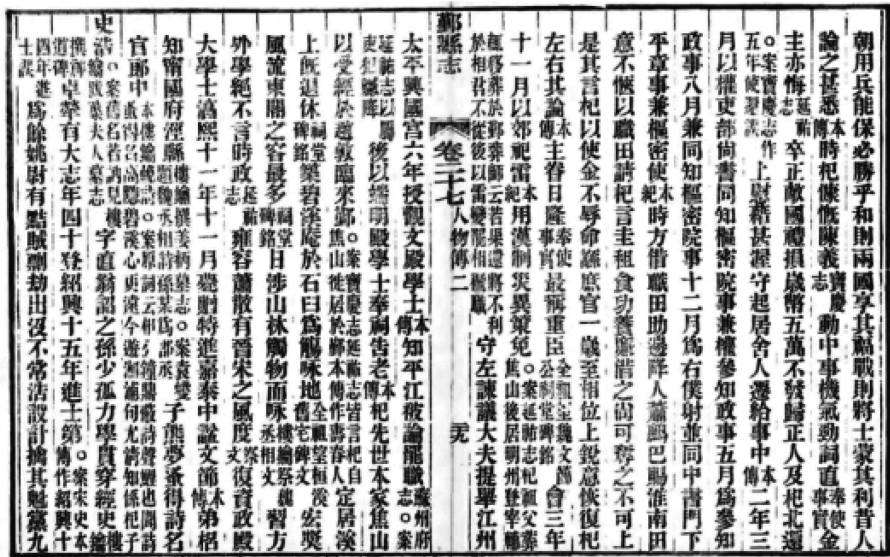 朝用兵能保必勝乎和則兩國享其福戰則將士蒙其利昔人
論之甚悉本傳時杞慷慨陳義寶慶志動中事機氣動詞直奉使事實金
主亦悔延祐志卒正敵國禮損歲幣五萬不發歸正人及杞北還
○案寶慶志作五年使還誤上慰藉甚渥守起居舍人遷給事中本傳二年三
月以權吏部尚書同知樞密院事兼權參知政事五月爲參知
政事八月兼同知樞密院事十二月爲右僕射並同中書門下
平章事兼樞密使本紀時方借職田助邊降人蕭鷓巴賜淮南田
意不愜以職田請杞言圭租食功養廉借之尚可奪之不可上
是其言杞以使金不辱命繇庶官一歲至相位上銳意恢復杞
左右其論本傳主眷日隆奉使事實最稱重臣全祖望魏文節公祠堂碑銘會三年
十一月以郊祀雷本紀用漢制災異策免○案延祐志杞祖父葬焦山後居明州登宰輔將葬於鄞葬師云若果遷將不利於相君不從後以雷變罷相守左諫議大夫提舉江州
鄞縣志 卷二十七 人物傳二
太平興國宮六年授觀文殿學士本傳知平江被論罷職蘇州府志○案延祐志以屬後以端明殿學士奉祠告老本傳杞先世本家焦山
以受經於趙敦臨來鄞○案寶慶志延祐志皆言杞自焦山徙居於鄞本傳作壽春人定居溪
上旣退休祠堂碑銘築碧溪庵於石臼爲觴咏地全祖望桓溪舊宅碑文宏獎
風流東閣之客最多祠堂碑銘日涉山林觸物而咏樓鑰祭魏丞相文習方
外學絕不言時政延祐志雍容蕭散有晉宋之風度祭文復資政殿
大學士淳熙十一年十一月薨贈特進嘉泰中諡文節本傳弟梠
知甯國府涇縣樓鑰撰姜柄墓志子熊夢蚤得詩名
官郎中
史浩字直翁詔之孫少孤力學貫穿經史樓鑰撰神道碑卓犖有大志年四十登紹興十五年進士第○案宋史本傳作紹興十四年進士誤爲餘姚尉有點賊剽劫出沒不常浩設計擒其魁黨九